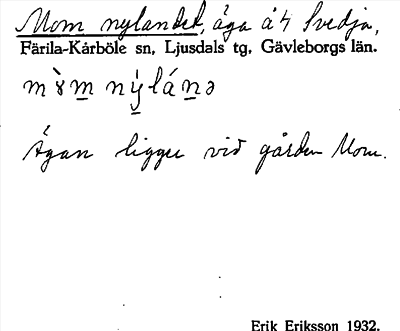 Mom nylandet, äga å 4 Svedja,
Färila-Kårböle sn, Ljusdals tg, Gävleborgs län.
Ägan ligger vid gården Mom.
Erik Eriksson 1932.